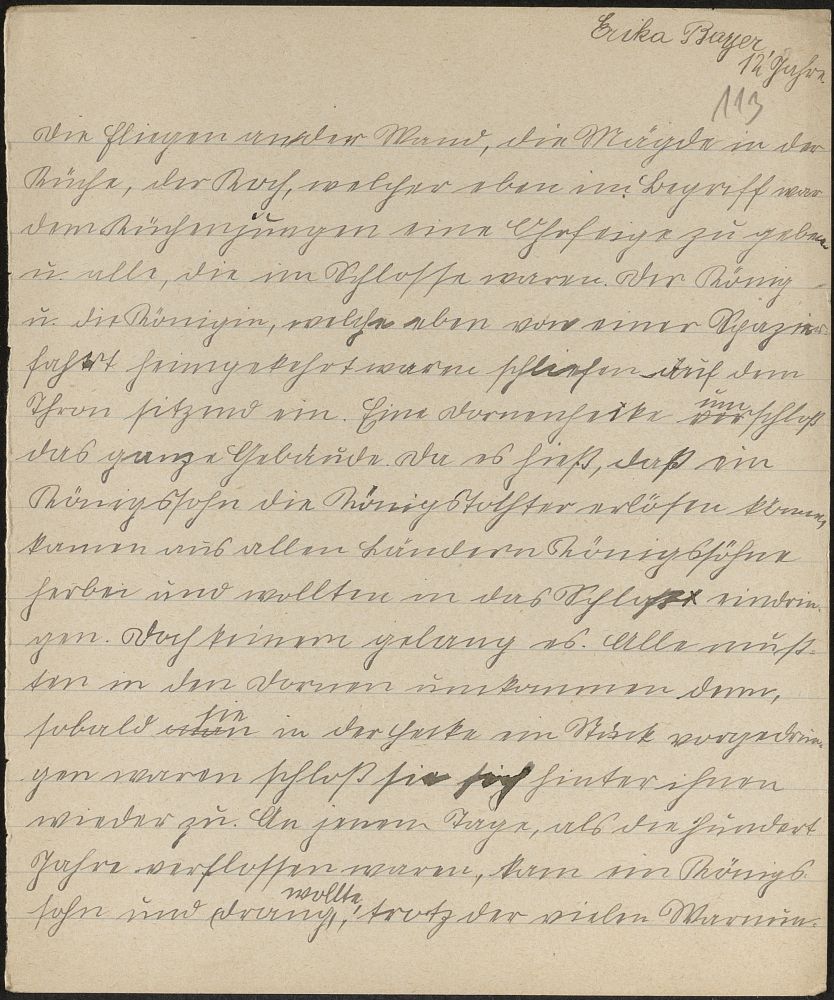 Erika Bayer
12 Jahre
113
die Fliegen an der Wand, die Mägde in der
Küche, der Koch, welcher eben im Begriff war
dem Küchenjungen eine Ohrfeige zu geben
u. alle, die im Schlosse waren. Der König
u. die Königin, welche eben von einer Spazier
fahrt heimgekehrt waren schliefen auf dem
Thron sitzend ein. Eine Dornenhecke umschloß
das ganze Gebäude. Da es hieß, daß ein
Königssohn die Königstochter erlösen könne,
kamen aus allen Ländern Königssöhne
herbei und wollten in das Schloß eindrin-
gen. Doch keinem gelang es. Alle muß-
ten in den Dornen umkommen denn,
sobald sie in der Hecke ein Stück vorgedrun-
gen waren schloß sie sich hinter ihnen
wieder zu. An jenem Tage, als die hundert
Jahre verflossen waren, kam ein Königs
sohn und wollte, trotz der vielen Warnun-